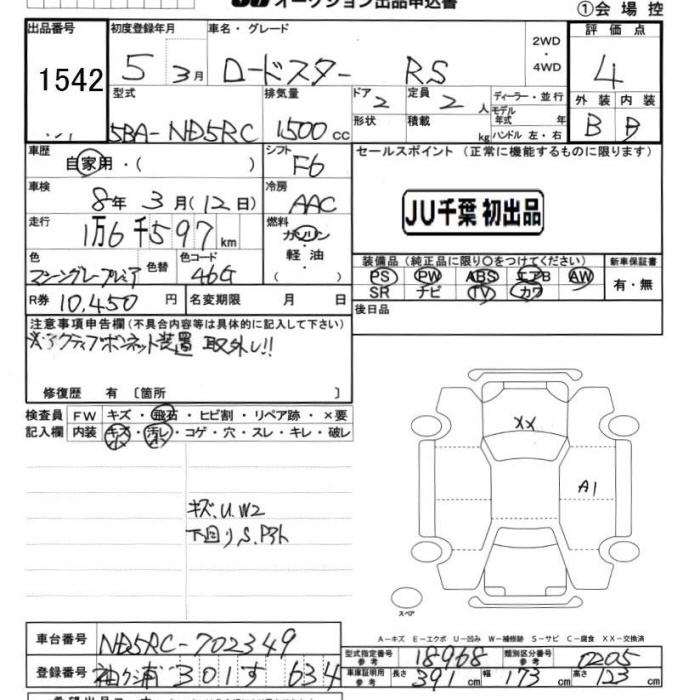 オークション出品申込書
①会場控
出品番号 初度登録年月 車名・グレード 評価点
1542 5 3月 ロードスター RS 2WD・4WD 4
型式 排気量 ドア 定員 ディーラー・並行 外装 内装
5BA-ND5RC 1500cc 2 2人 モデル年式 年 B B
形状 積載 kg ハンドル 左・右
車歴 シフト セールスポイント (正常に機能するものに限ります)
自家用・( ) F6
車検 8年3月(12日) 冷房 AAC
JU千葉 初出品
走行 1万6千597km 燃料 ガソリン
軽油
( )
色 色替 色コード
マシングレープレミア 46G
装備品(純正品に限り○をつけてください) 新車保証書
PS PW ABS エアB AW 有・無
SR ナビ TV カワ
R券 10,450円 名変期限 月 日
後日品
注意事項申告欄(不具合内容等は具体的に記入して下さい)
※アクティブボンネット装置 取外し!!
修復歴 有〔箇所 〕
検査員 FW キズ・飛石・ヒビ割・リペア跡・×要
記入欄 内装 キズ・汚レ・コゲ・穴・スレ・キレ・破レ
XX
A1
キズ.U.W2
下回り.S.
スペア
A-キズ E-エクボ U-凹み W-補修跡 S-サビ C-腐食 XX-交換済
車台番号 ND5RC-702349
型式指定番号 参考 18968 類別区分番号 参考 0205
登録番号 袖ケ浦 301 す 634
車庫証明用 参考 長さ 391cm 幅 173cm 高さ 123cm